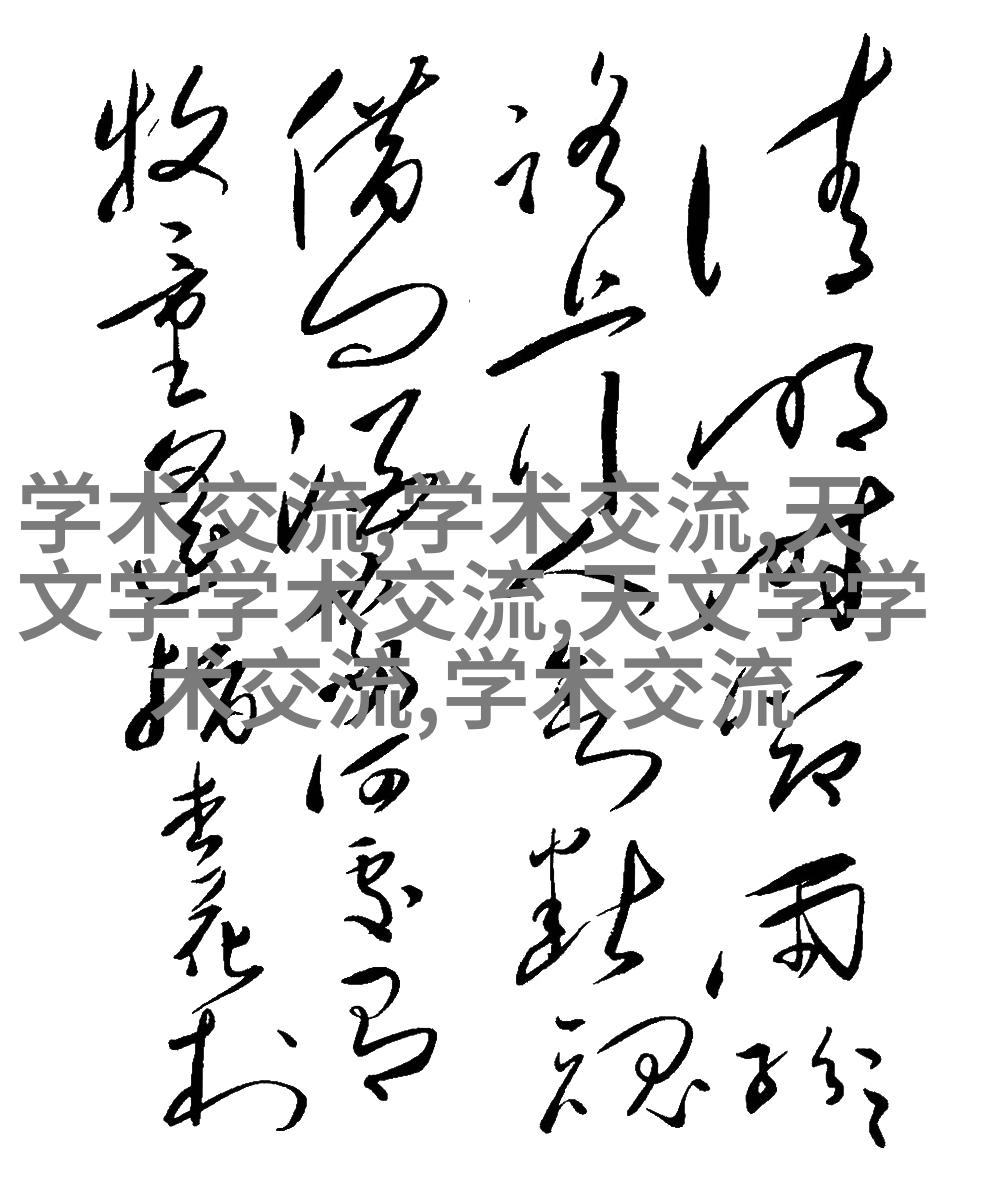 清明時節雨紛紛
路上行人欲斷魂
借問酒家何處有
牧童遙指杏花村
学术交流,学术交流,天
文学学术交流,天文学学
术交流,学术交流